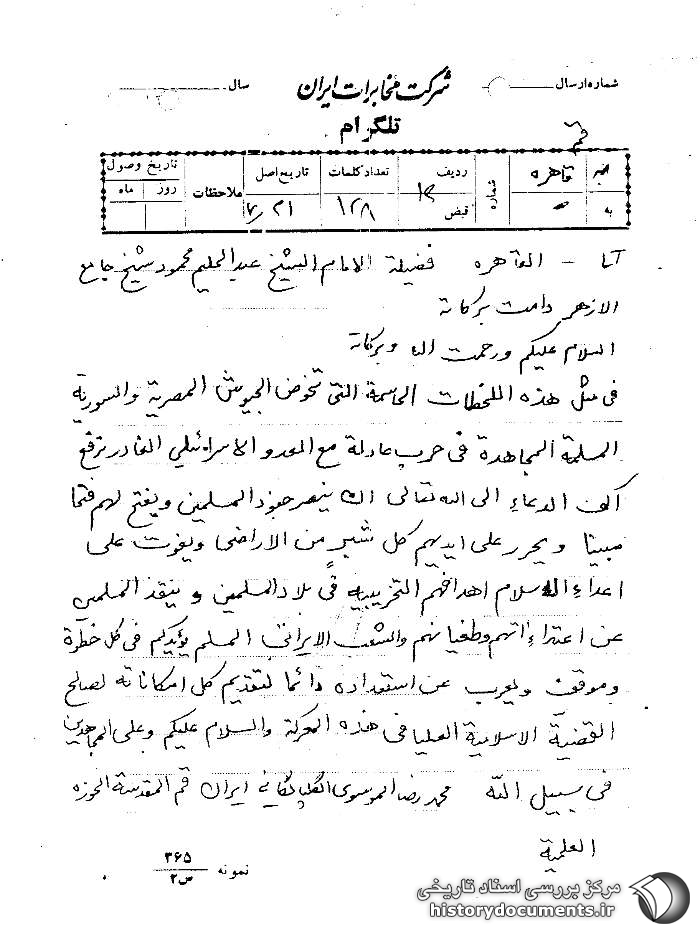 شماره ارسال
سال
شرکت مخابرات ایران
تلگرام
قم
قاهره
به
ردیف
قبض
شماره
تعداد کلمات
۱۲۸
تاریخ اصل
۲۱
ملاحظات
تاریخ وصول
روز
ماه
القاهره فضیلة الامام الشیخ عبدالحلیم محمود شیخ جامع
الازهر دامت برکاته
السلام علیکم ورحمت الله وبرکاته
فی مثل هذه اللحظات الحاسمة التی تخوض الجیوش المصریة والسوریة
المسلمة المجاهدة فی حرب عادلة مع العدو الاسرائیلی الغادر نرفع
اکف الدعاء الی الله تعالی ان ینصر جنود المسلمین ویفتح لهم فتحا
مبینا ویحرر علی ایدیهم کل شبر من الاراضی ویفوت علی
اعداء الاسلام اهدافهم التخریبیه فی بلاد المسلمین و ینقذ المسلمین
عن اعتداءاتهم وطغیانهم والشعب الایرانی المسلم یؤیدکم فی کل خطوة
وموقف ویعرب عن استعداده دائما لتقدیم کل امکاناته لصالح
القضیة الاسلامیة العلیا فی هذه المعرکة والسلام علیکم وعلی المجاهدین
فی سبیل الله محمدرضا الموسوی الگلپایگانی ایران قم المقدسة الحوزه
العلمیة
نمونه ۳۶۵ / س۲
مرکز بررسی اسناد تاریخی
historydocuments.ir